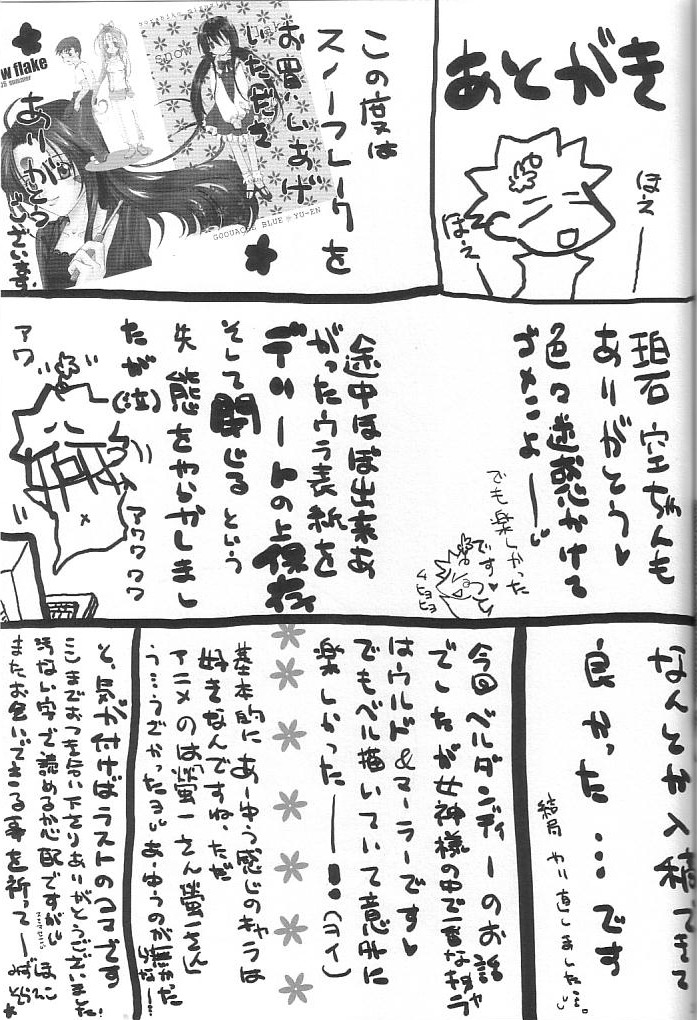 あとがき
ほえ——
ほえ——
この度は
スノーフレークを
お買いあげ
いただき
ありがとう
ございます。
w flake
GOUACHE BLUE ♡ YU-EN
空ちゃんも
ありがとう♥
色々迷惑かけて
ゴメンよ——
でも楽しかった
です♥
途中ほぼ出来あ
がったウラ表紙を
デリートの上保存
そして閉じる という
失態をやらかしまし
たが(泣)
アワ
アワワワワ
なんとか入稿できて
良かった…です
結局 やり直しました…。
今回ベルダンディーのお話
でしたが女神様の中で一番なキャラ
はウルド&マーラーです♥
でもベル描いていて意外に
楽しかった——!
基本的にあーゆう感じのキャラは
好きなんですね。ただ
アニメのは「螢一さん螢一さん」
う…うざかったよ あーゆうのが無かった
と、気が付けばラストのコマです
ここまでおつき合い下さりありがとうございました!
汚ない字で読めるか心配ですが ほんと
またお会いできる事を祈って——